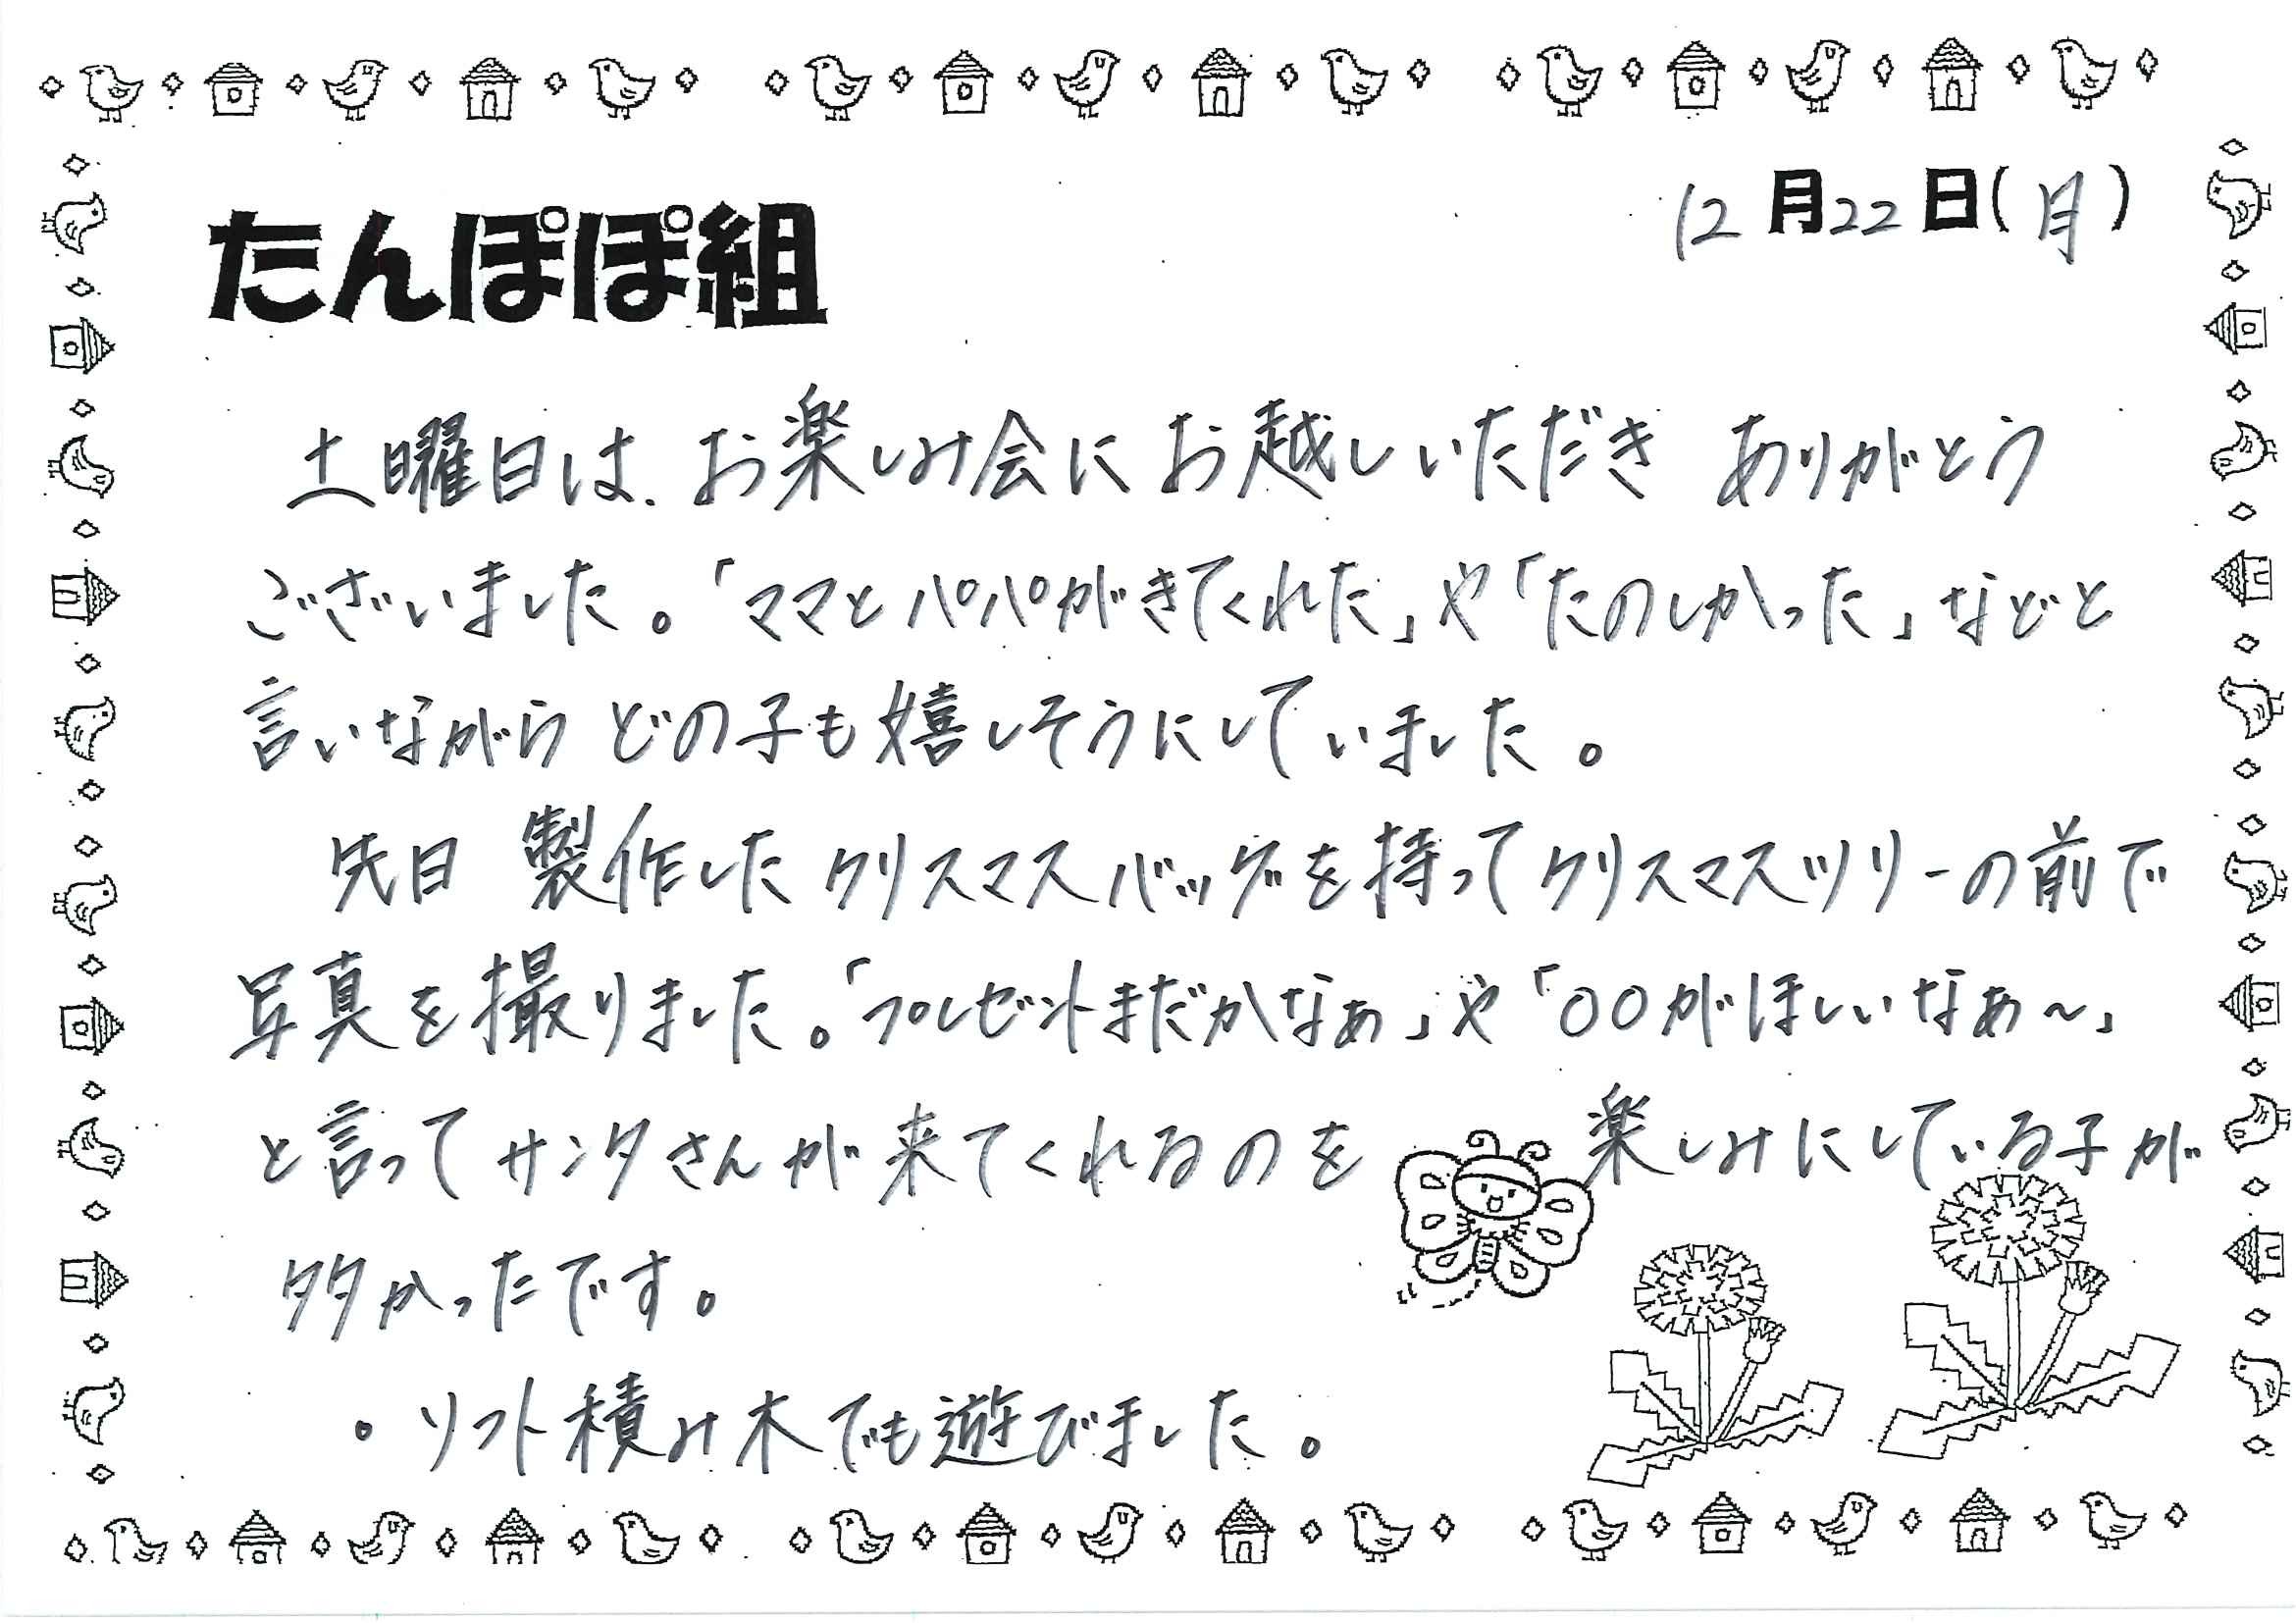 12月22日(月)
たんぽぽ組
土曜日は、お楽しみ会にお越しいただき ありがとう
ございました。「ママとパパがきてくれた」や「たのしかった」などと
言いながら どの子も嬉しそうにしていました。
先日 製作したクリスマスバッグを持ってクリスマスツリーの前で
写真を撮りました。「プレゼントまだかなぁ」や「〇〇がほしいなぁ〜」
と言ってサンタさんが来てくれるのを 楽しみにしている子が
多かったです。
。ソフト積み木でも遊びました。